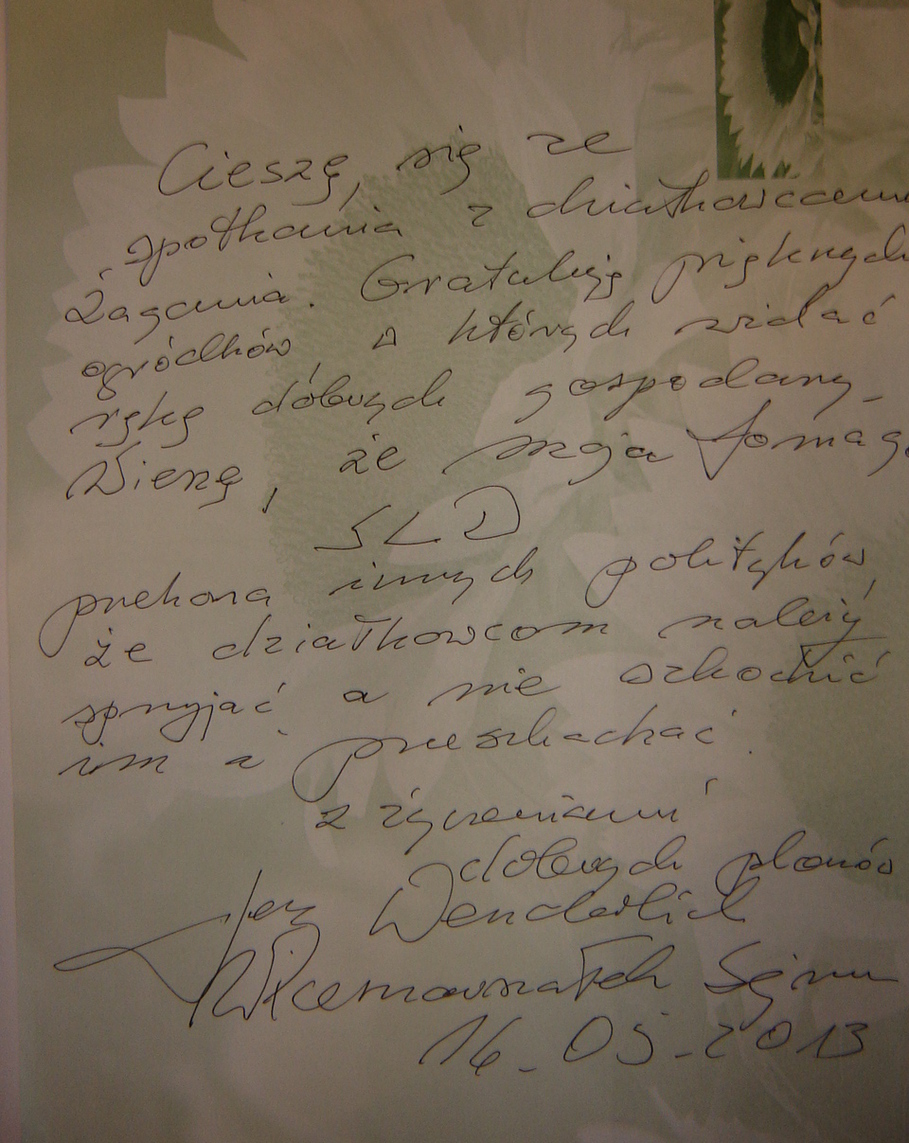 Cieszę, się ze
spotkania z działkowcami
Żagania. Gratuluję pięknych
ogródków, w których widać
rękę dobrych gospodarzy.
Wierzę, że moja formacja
SLD
przekona innych polityków,
że działkowcom należy
sprzyjać a nie szkodzić
im i przeszkadzać.
z życzeniami
dobrych plonów
Jerzy Wenderlich
Wicemarszałek Sejmu
16.05.2013